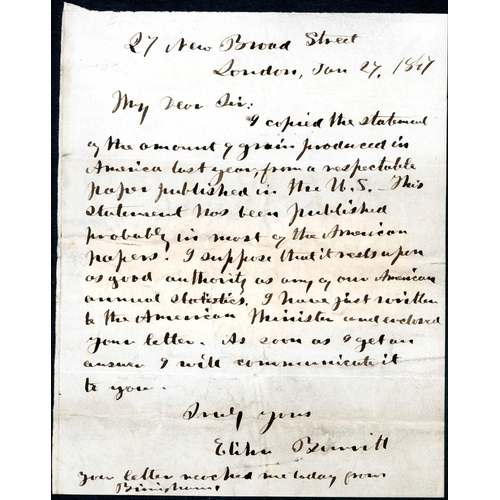 27 New Broad Street
London, Jan 27, 1847
My Dear Sir:
I copied the statement
of the amount of grain produced in
America last year, from a respectable
paper published in the U.S. This
statement has been published
probably in most of the American
papers. I suppose that it rests upon
as good authority as any of our American
annual statistics. I have just written
to the American Minister and enclosed
your letter. As soon as I get an
answer I will communicate it
to you.
Truly yours
Elihu Burritt
your letter reached me today from
Birmingham